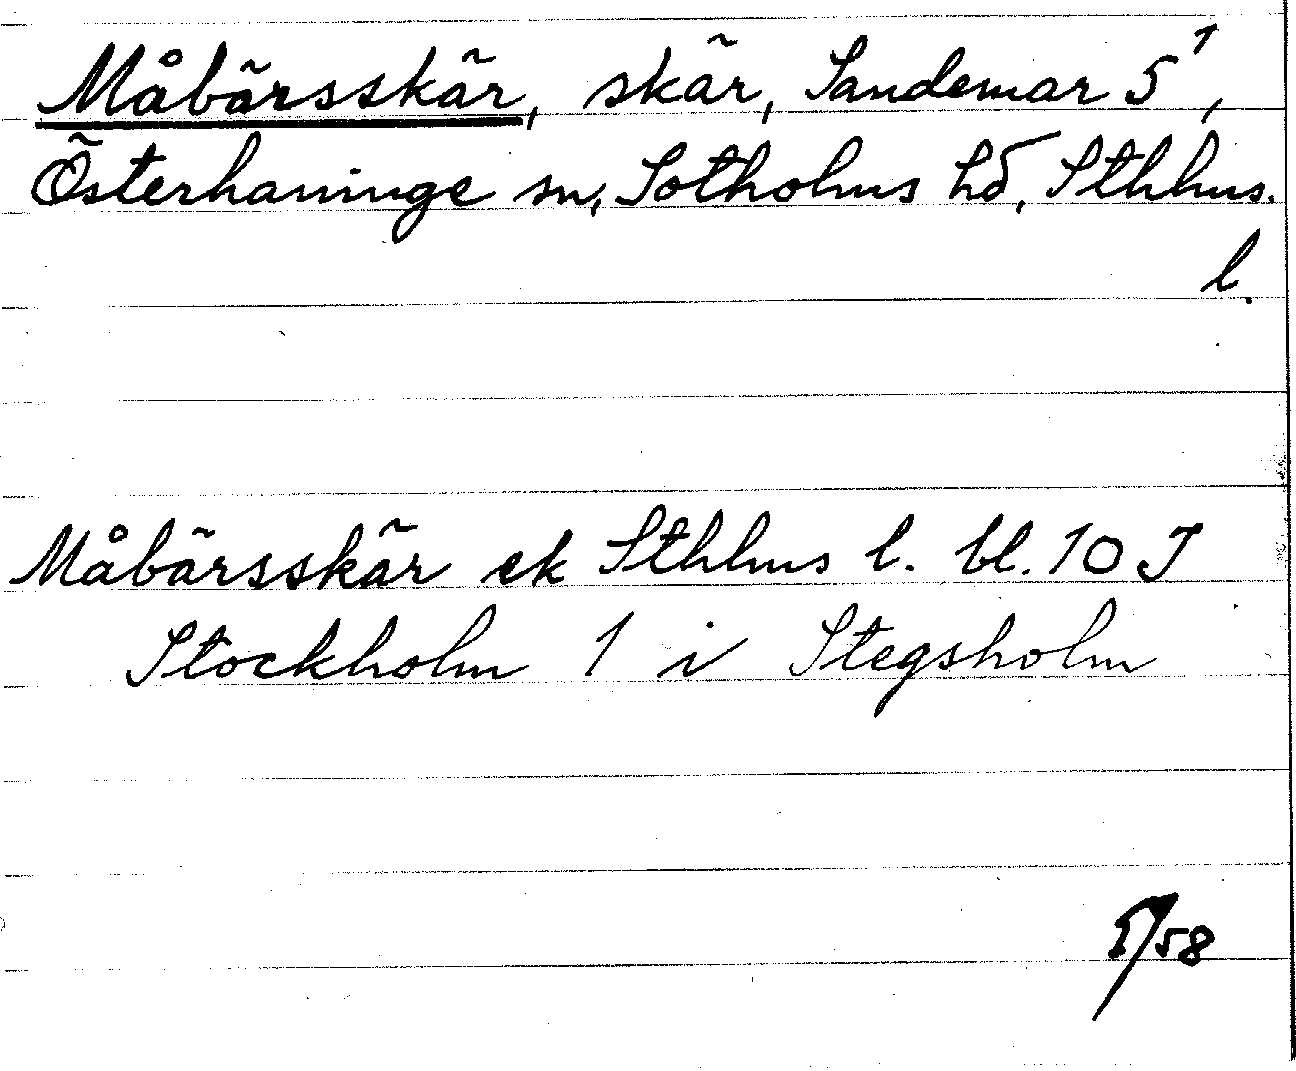 Måbärsskär, skär, Sandemar 5¹,
Österhaninge sn, Sotholms hd, Sthlms.
l.
Måbärsskär ek Sthlms l. bl. 10 J
Stockholm 1 i Stegsholm
5/58